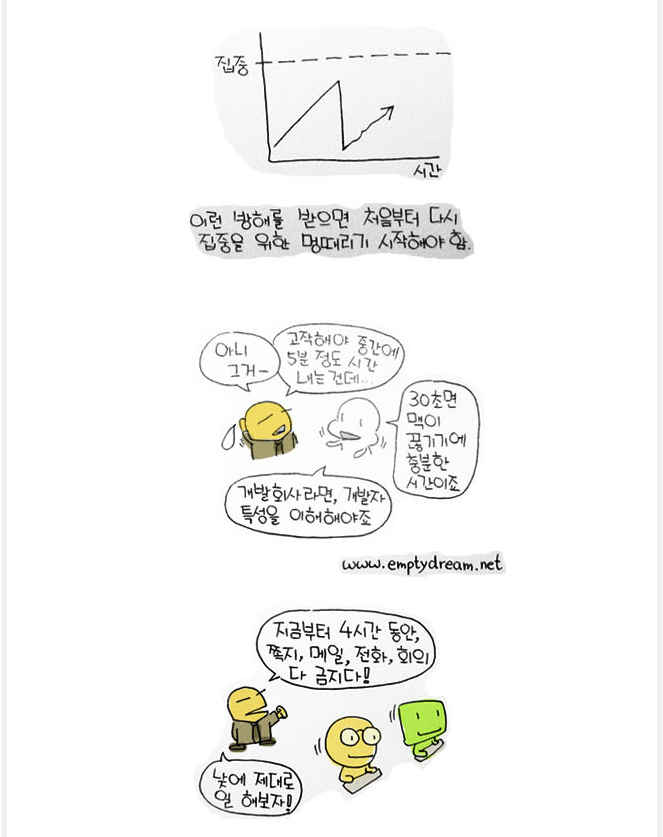 집중
시간
이런 방해를 받으면 처음부터 다시
집중을 위한 멍때리기 시작해야 함.
아니
그거~
고작해야 중간에
5분 정도 시간
내는 건데...
30초면
맥이
끊기기에
충분한
시간이죠
개발회사라면, 개발자
특성을 이해해야죠
www.emptydream.net
지금부터 4시간 동안,
쪽지, 메일, 전화, 회의
다 금지다!
낮에 제대로
일 해보자!